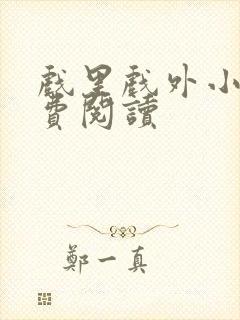 戲里戲外小
費閱讀
鄭一真